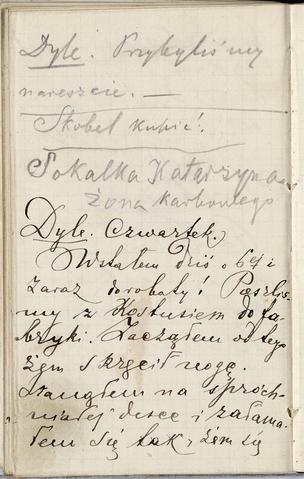 Dyle. Przybyliśmy
nareszcie. —
Skobel kupić!
Sokalka Katarzyna
żona karbowego
Dyle. Czwartek.
Wstałem dziś o 6ej i
zaraz do roboty! Poszliś-
my z Kostusiem do fa-
bryki. Zacząłem od tego
żem skręcił nogę.
Stanąłem na spróch-
niałej desce i załama-
łem się tak, żem się